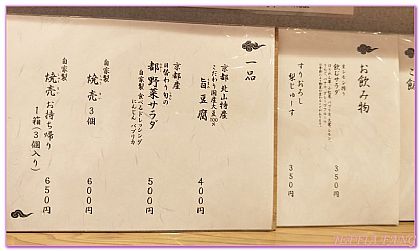 一品
京都 北山特産
こだわり国産大豆100%
旨豆腐
400円
京都産
日替わり旬の
都野菜サラダ
自家製 食べるドレッシング
にんじん パプリカ
500円
自家製
焼売 3個
600円
自家製
焼売 お持ち帰り
1箱(3個入り)
650円
お飲み物
飲むサラダ
350円
すりおろし
梨じゅーす
350円